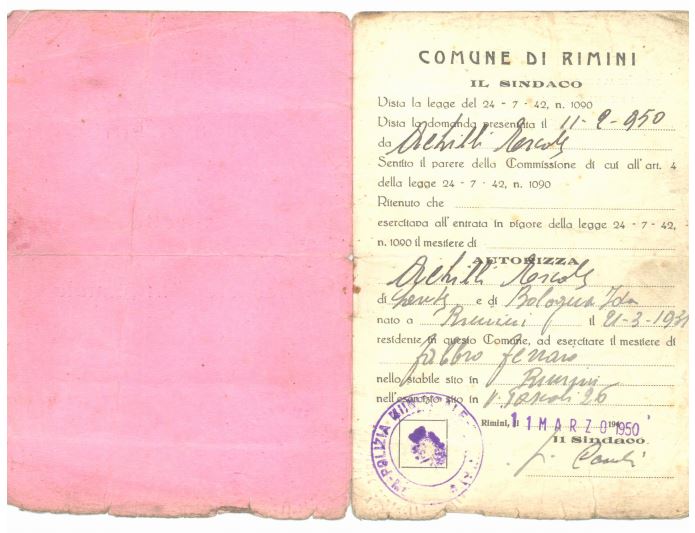 COMUNE DI RIMINI
IL SINDACO
Vista la legge del 24 - 7 - 42, n. 1090
Vista la domanda presentata il 11-2-950
da Achilli
Sentito il parere della Commissione di cui all'art. 4
della legge 24 - 7 - 42, n. 1090
Ritenuto che
esercitava all'entrata in vigore della legge 24 - 7 - 42,
n. 1090 il mestiere di
AUTORIZZA
Achilli
di e di Bologna Ida
nato a Rimini il 21-3-1931
residente in questo Comune, ad esercitare il mestiere di
fabbro ferraio
nello stabile sito in Rimini
nell'esercizio sito in V. Pascoli 26
Rimini, il 11 MARZO 1950
Il Sindaco
POLIZIA MUNICIPALE